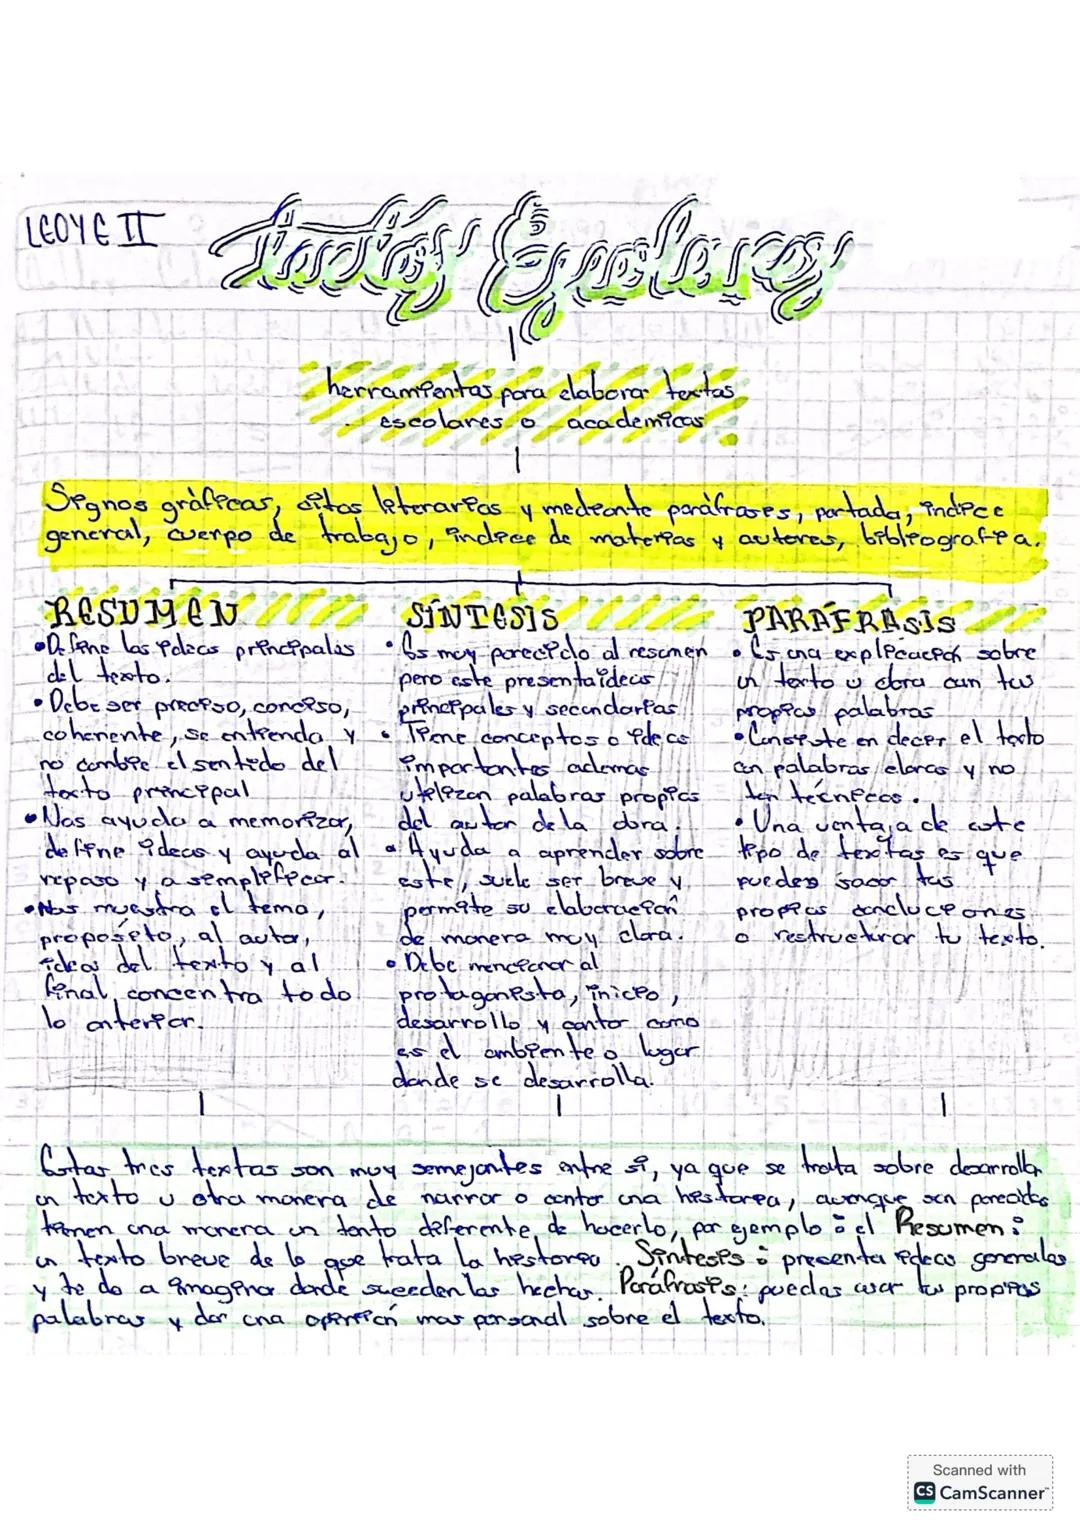 LEOYE II
Textos Escolares
herramientas para elaborar textos
escolares o academicos
Signos gráficos, citas literarias y mediante paráfrases, portada, indice
general, cuerpo de trabajo, indice de materias y autores, bibliografia.
RESUMEN
•Define las ideas principales
del texto.
•Debe ser preciso, conciso,
coherente, se entienda y
no cambie el sentido del
texto principal
•Nos ayuda a memorizar,
define ideas y ayuda al
repaso y a simplificar.
•Nos muestra el tema,
proposito, al autor,
idea del texto y al
final, concentra todo
lo anterior.
SÍNTESIS
•Es muy parecido al resumen
pero este presenta ideas
principales y secundarias
•Tiene conceptos o ideas
importantes ademas
utilizan palabras propias
del autor de la obra.
•Ayuda a aprender sobre
este, suele ser breve y
permite su elaboración
de manera muy clara.
•Debe mencionar al
protagonista, inicio,
desarrollo y contar como
es el ambiente o lugar
donde se desarrolla.
PARÁFRASIS
•Es una explicación sobre
un texto u obra con tus
propias palabras
•Consiste en decir el texto
con palabras claras y no
tan técnicas.
•Una ventaja de este
tipo de textos es que
puedes sacar tus
propias conclusiones
o restructurar tu texto.
Estas tres textos son muy semejantes entre sí, ya que se trata sobre desarrollar
un texto u otra manera de narrar o contar una historia, aunque son parecidos
tienen una manera un tanto diferente de hacerlo, por ejemplo: el Resumen:
un texto breve de lo que trata la historia. Síntesis: presenta ideas generales
y te da a imaginar donde suceden los hechos. Paráfrasis: puedas usar tus propias
palabras y dar una opinión mas personal sobre el texto.
Scanned with
CS CamScanner